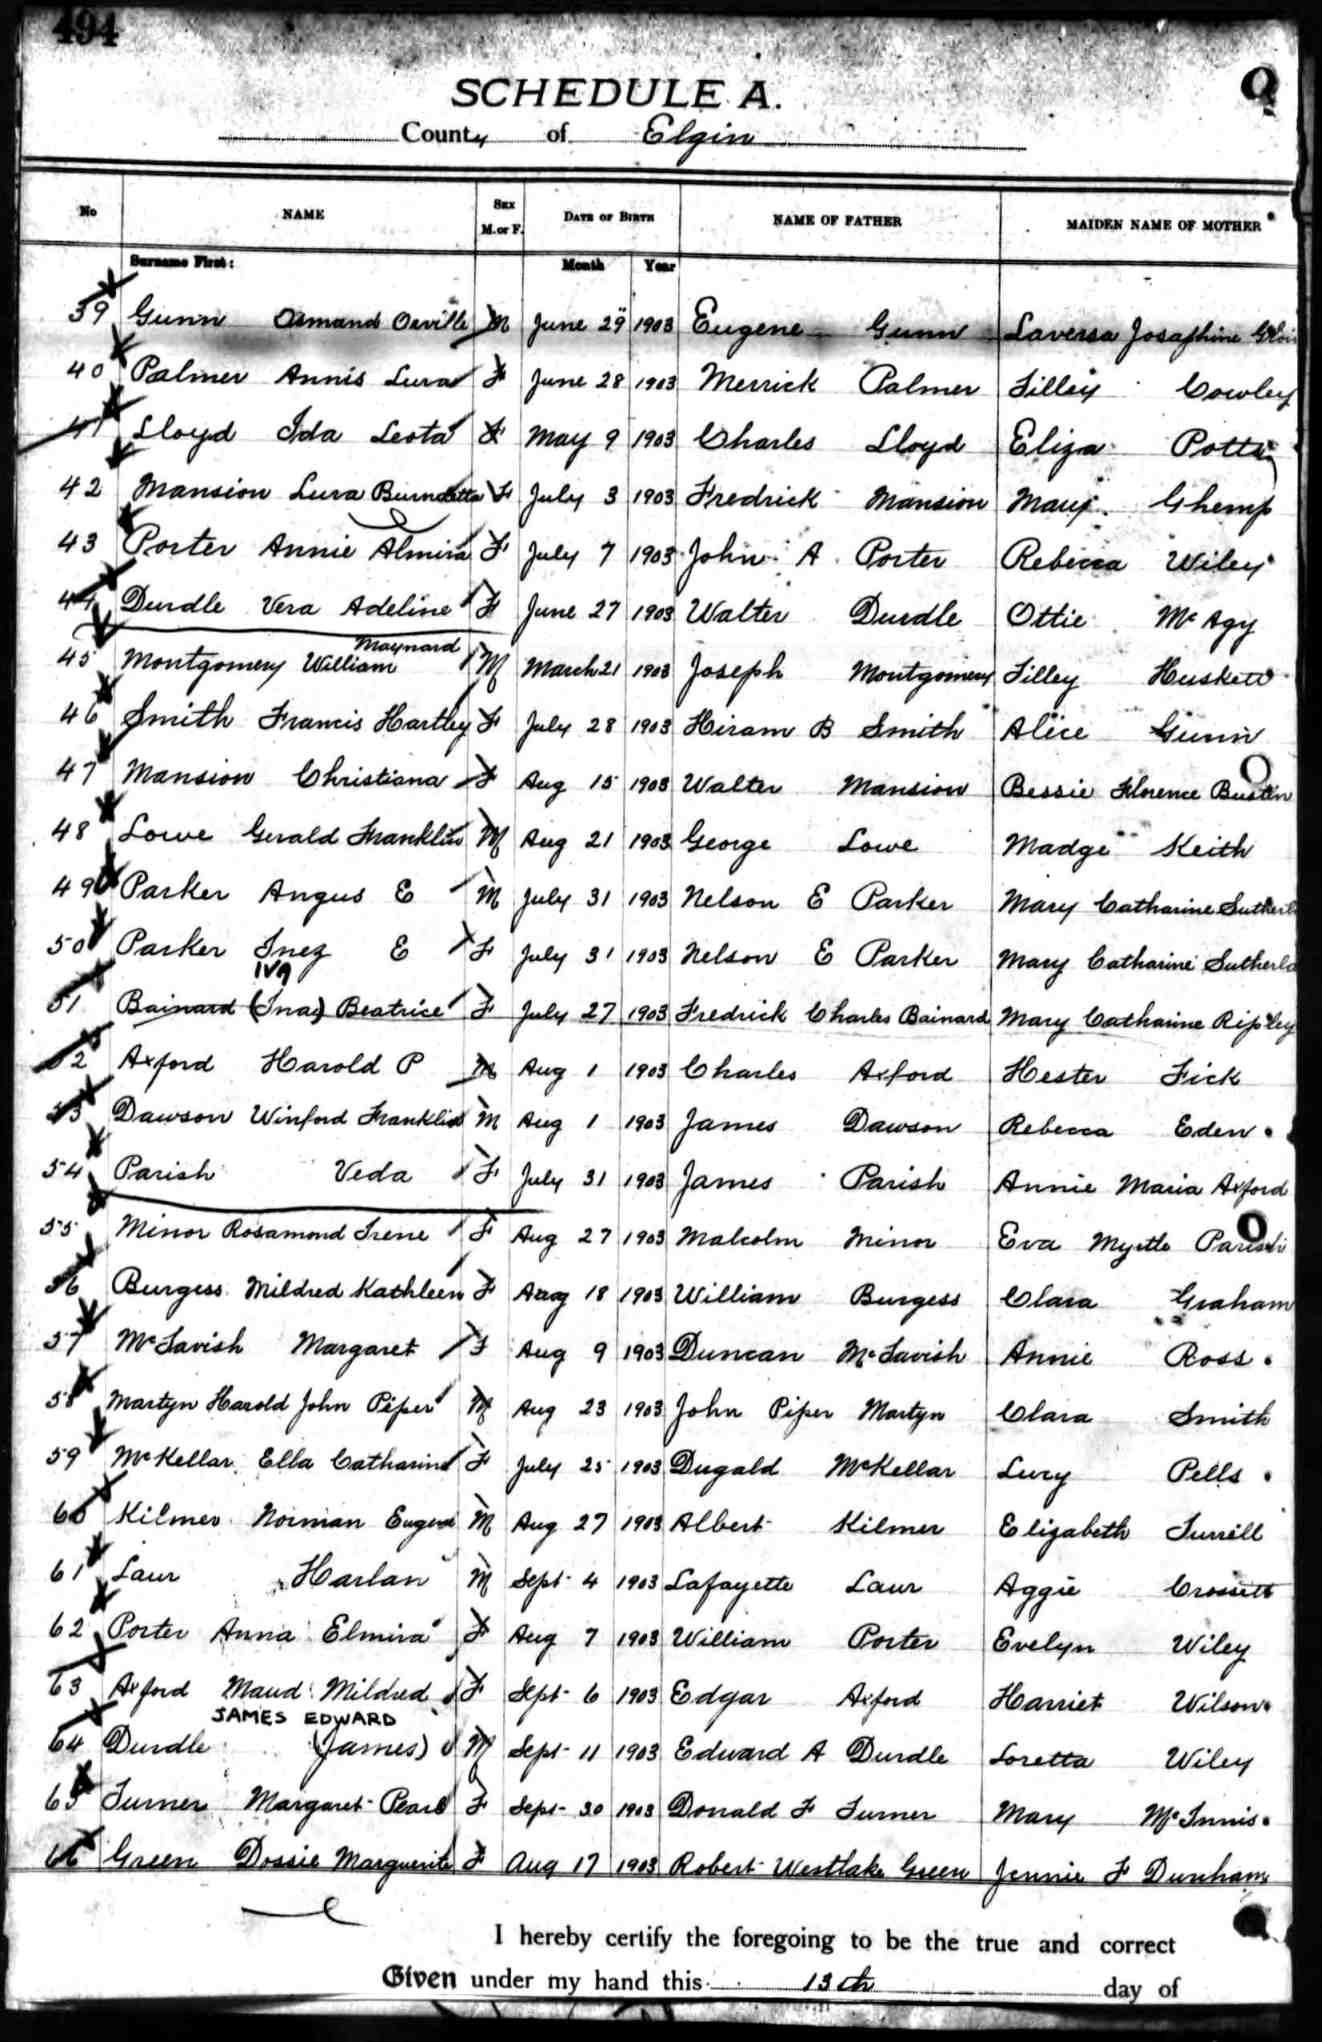 494
SCHEDULE A.
County of Elgin
No NAME SEX M. or F. DATE OF BIRTH NAME OF FATHER MAIDEN NAME OF MOTHER
Surname First: Month Year
39 Gunn Osmand Orville M June 29 1903 Eugene Gunn Laversa Josaphine
40 Palmer Annis Lura F June 28 1903 Merrick Palmer Tilley Cowley
41 Lloyd Ida Leota F May 9 1903 Charles Lloyd Eliza Potts
42 Mansion Lura Burndetta F July 3 1903 Fredrick Mansion Mary Ghemp
43 Porter Annie Almira F July 7 1903 John A Porter Rebecca Wiley
44 Durdle Vera Adeline F June 27 1903 Walter Durdle Ottie Mc Agy
45 Montgomery William Maynard M March 21 1903 Joseph Montgomery Tilley Huskett
46 Smith Francis Hartley F July 28 1903 Hiram B Smith Alice Gunn
47 Mansion Christiana F Aug 15 1903 Walter Mansion Bessie Florence Bustin
48 Lowe Gerald Franklin M Aug 21 1903 George Lowe Madge Keith
49 Parker Angus E M July 31 1903 Nelson E Parker Mary Catharine Sutherl
50 Parker Inez E F July 31 1903 Nelson E Parker Mary Catharine Sutherla
IVA
51 Bainard (Ina) Beatrice F July 27 1903 Fredrick Charles Bainard Mary Catharine Ripley
52 Axford Harold P M Aug 1 1903 Charles Axford Hester Fick
53 Dawson Winford Franklin M Aug 1 1903 James Dawson Rebecca Eden.
54 Parish Veda F July 31 1903 James Parish Annie Maria Axford
55 Minor Rosamond Irene F Aug 27 1903 Malcolm Minor Eva Myrtle Parish
56 Burgess Mildred Kathleen F Aug 18 1903 William Burgess Clara Graham
57 McTavish Margaret F Aug 9 1903 Duncan McTavish Annie Ross.
58 Martyn Harold John Piper M Aug 23 1903 John Piper Martyn Clara Smith
59 McKellar Ella Catharine F July 25 1903 Dugald McKellar Lucy Pells.
60 Kilmer Norman Eugene M Aug 27 1903 Albert Kilmer Elizabeth Turrill
61 Laur Harlan M Sept 4 1903 Lafayette Laur Aggie Crossett
62 Porter Anna Elmira F Aug 7 1903 William Porter Evelyn Wiley
63 Axford Maud Mildred F Sept 6 1903 Edgar Axford Harriet Wilson.
JAMES EDWARD
64 Durdle (James) M Sept 11 1903 Edward A Durdle Loretta Wiley
65 Turner Margaret Pearl F Sept 30 1903 Donald F Turner Mary McInnis.
66 Green Dossie Marguerite F Aug 17 1903 Robert Westlake Green Jennie F Dunham
I hereby certify the foregoing to be the true and correct
Given under my hand this 13th day of